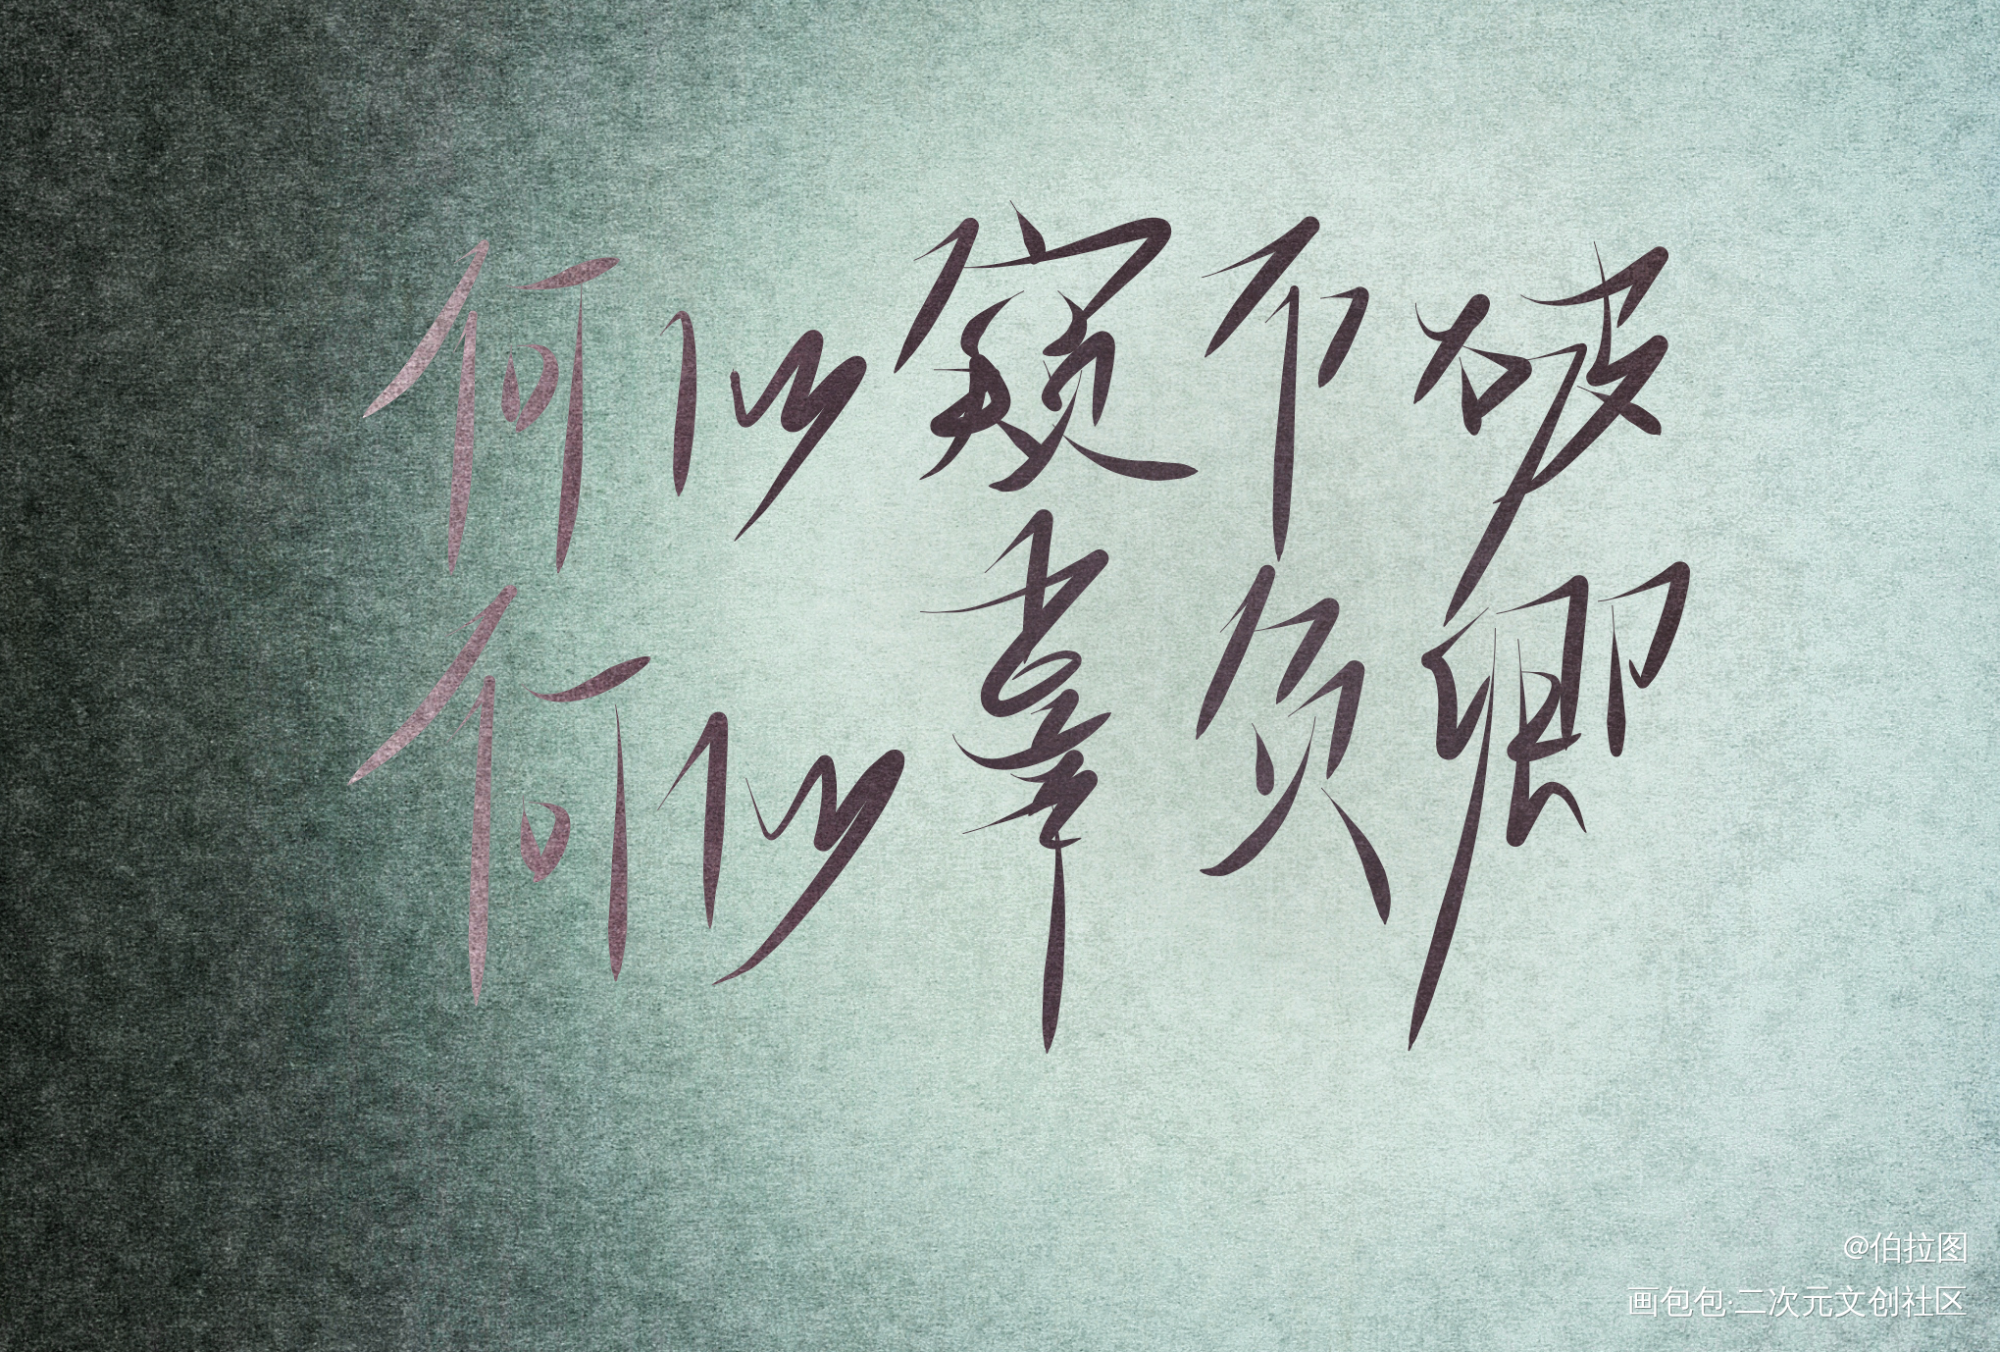 何似窥不破
何似辜负卿
@伯拉图
画包包·二次元文创社区